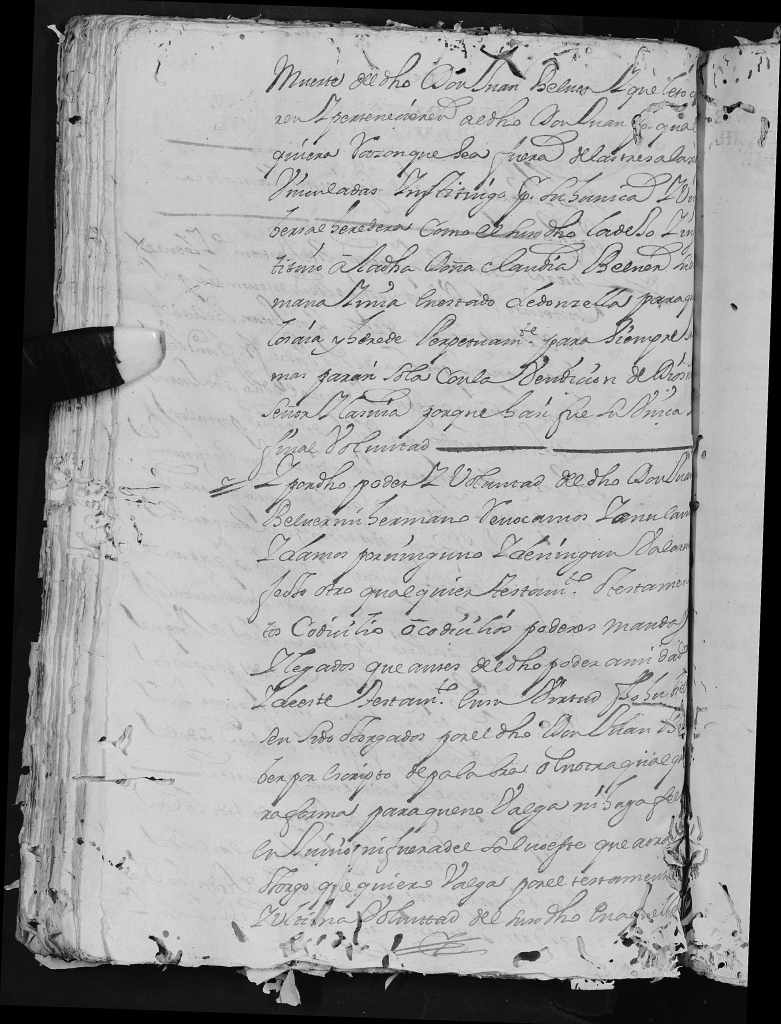 Muerte del dho Don Juan Belver Y que le to
ren Y pertenecieren al dho Don Juan por qual
quiera Razon que sea fuera de las
Vinculadas Ynstituigo por su hunica Y Vni
bersal heredera Como el suso dho la deJo Yns
tituio a la dha Doña Claudia Belver
mana Y mia en estado de donzella para q
los aia y herede Perpetuamte para siempre Ja
mas para si sola con la Vendicion de Dios
señor Y la mia porque hasi fue su Vnica
final Voluntad
Y por dho poder Y Voluntad del dho Don Jua
Belver mi hermano Revocamos Y anulam
Y damos por ninguno Y de ningun Valor
todo otro qualquier testamto O testamen
tos Codicilio o codicilios poderes mandas
Y legados que antes del dho poder a mi dad
Y de este testamto en su Virtud
sen sido otorgados por el dho Don Juan Be
ber por escripto de palabra o en otra qualqui
ra forma para que no Valga ni haga fe
en Juicio ni fuera de el salvo este que aora
otorgo que quiero Valga por el testamento
Y Vltima Voluntad del suso dho en aquella